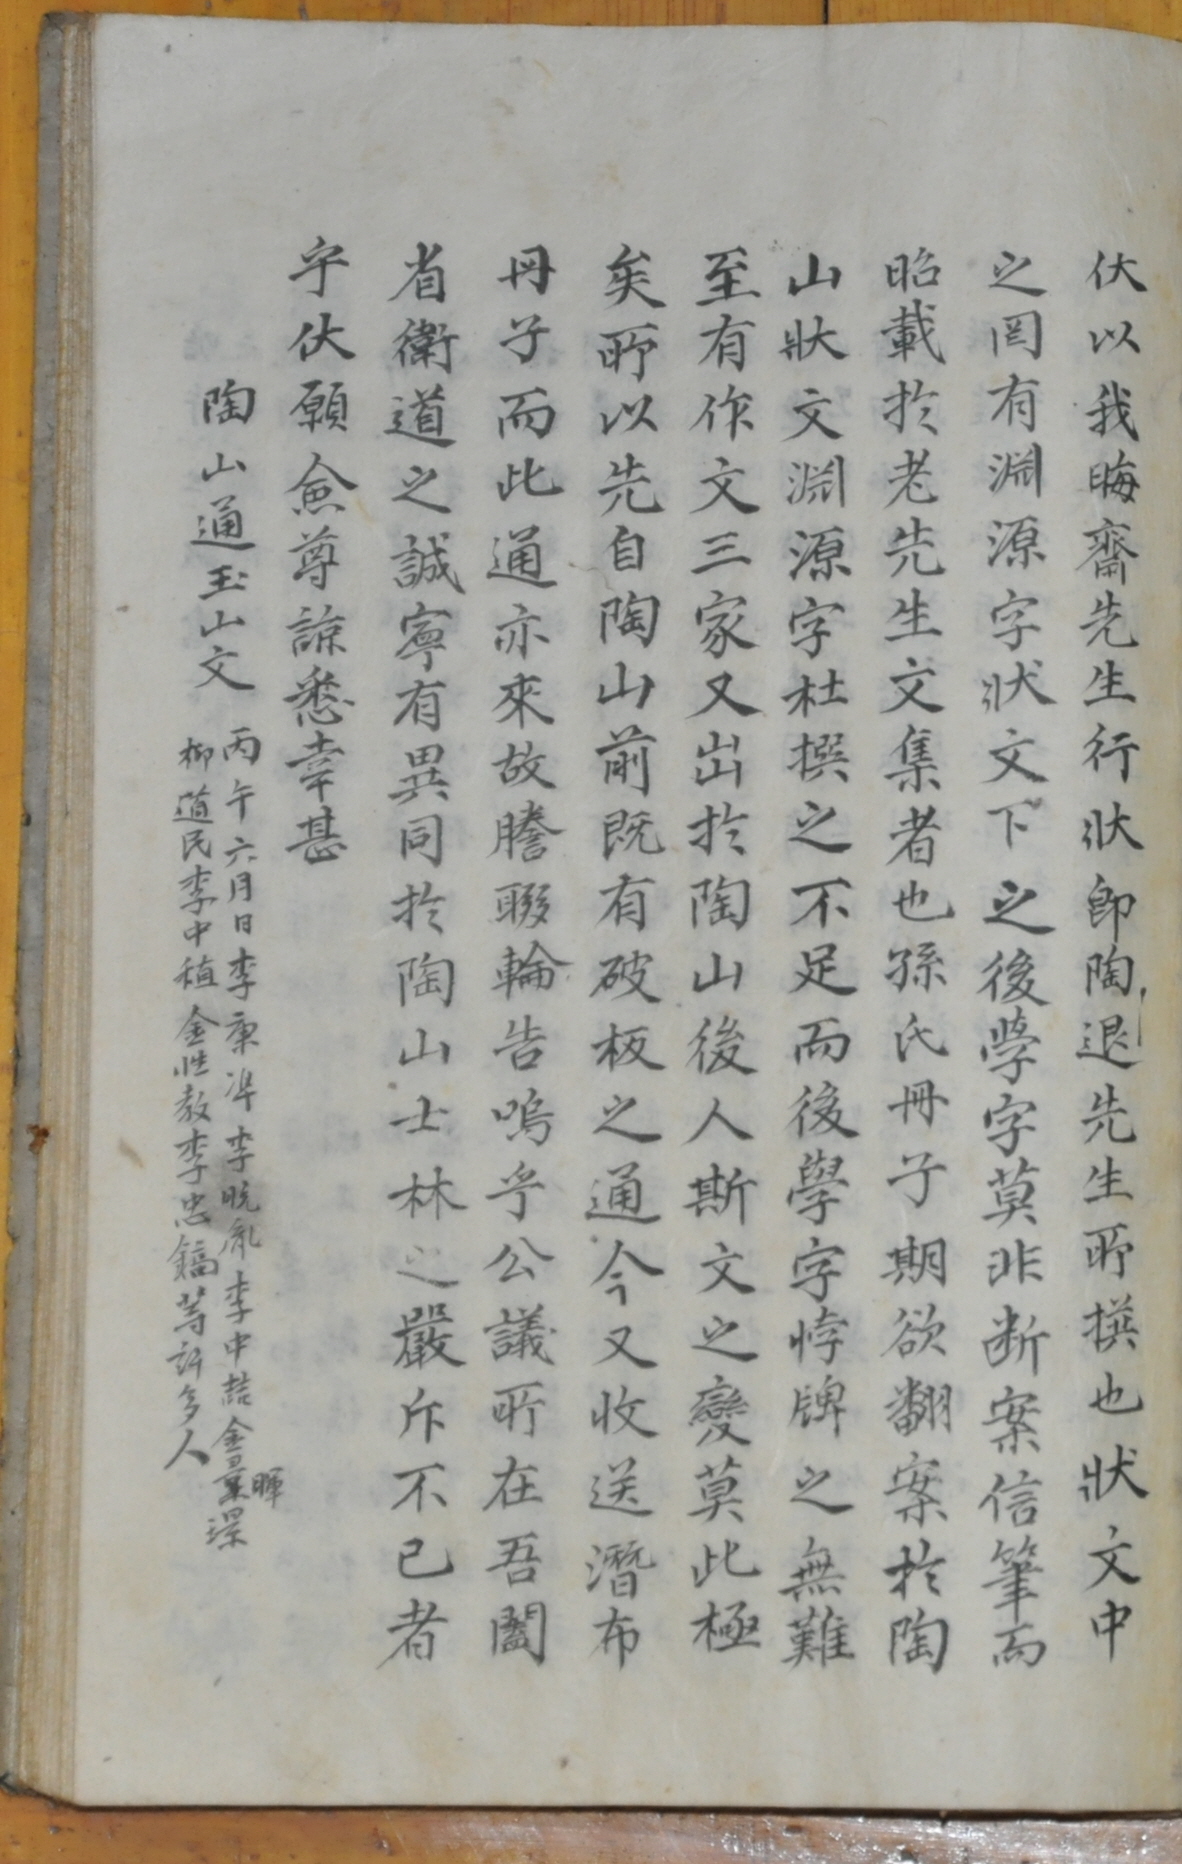 伏以我晦齋先生行狀卽陶退先生所撰也狀文中
之罔有淵源字狀文下之後學字莫非断案信筆而
昭載於老先生文集者也孫氏冊子期欲翻案於陶
山狀文淵源字杜撰之不足而後學字悖牌之無難
至有作文三家又出於陶山後人斯文之變莫此極
矣所以先自陶山前既有破板之通今又收送潛布
冊子而此通亦來故謄聯輪告嗚乎公議所在吾闔
省衛道之誠寧有異同於陶山士林之嚴斥不已者
乎伏願僉尊諒悉幸甚
陶山通玉山文
丙午六月日李康準李晩胤李中喆金暈暉璟
柳道民李中稙金性教李忠鎬等許多人